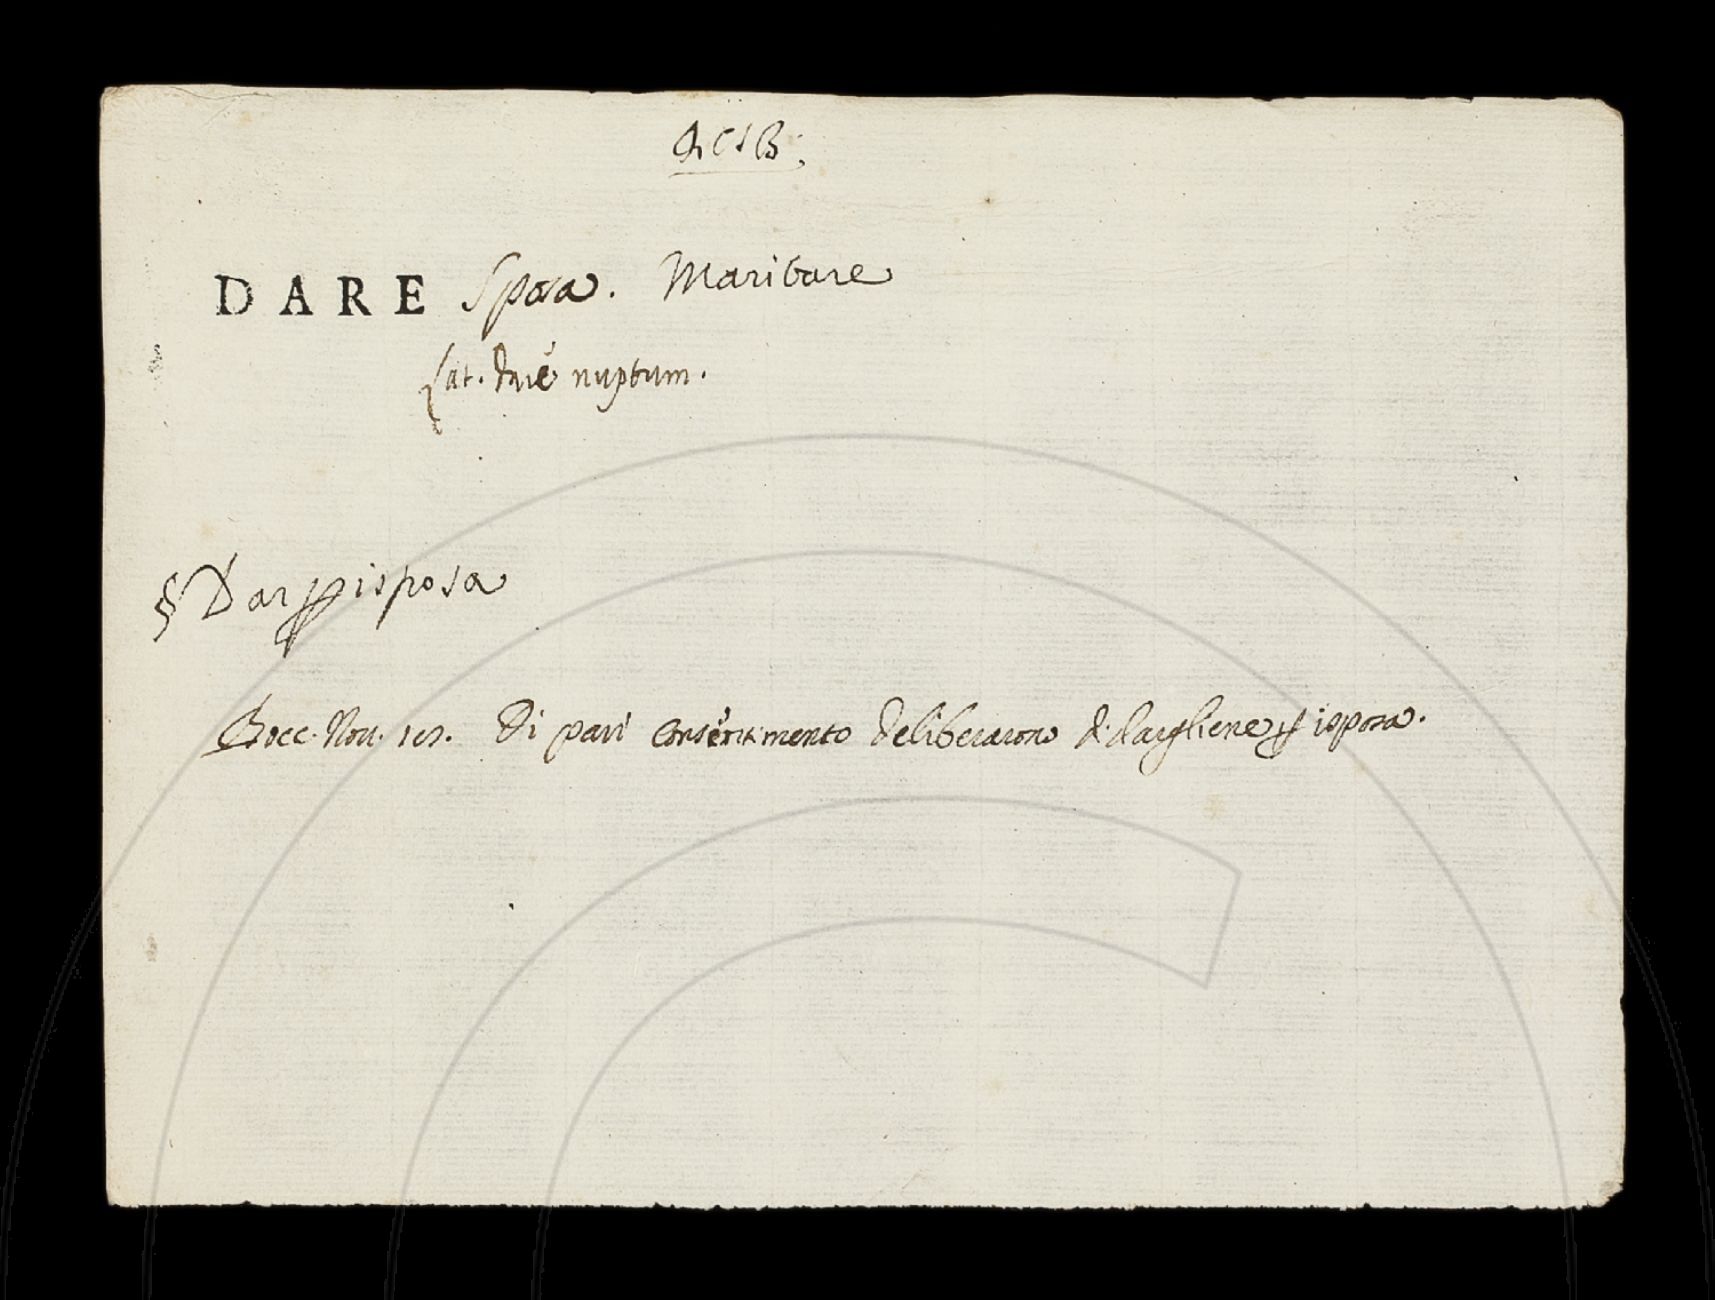 DARE Sposa. Maritare
Lat. dare nuptum.
§ Dar p isposa
Bocc. Nov. Di pari consentimento deliberarono di dargliene p isposa.